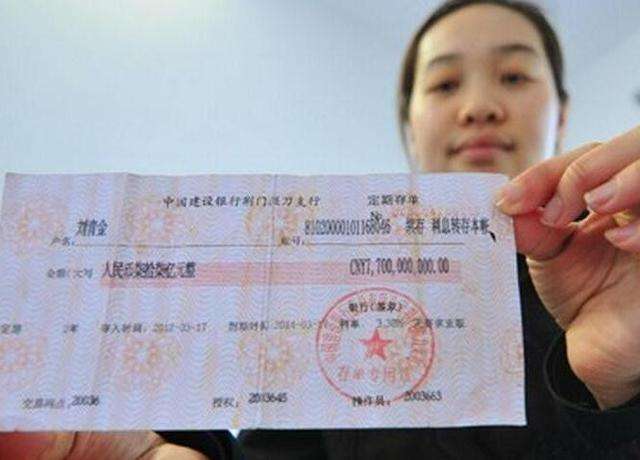 中国建设银行荆门掇刀支行 定期存单
刘青金 81020000101168046 利息转存本账
户名: 账号:
金额(大写 人民币柒拾柒亿元整 CNY7,700,000,000.00
银行(签章)
定期 2年 存入时间: 2012-03-17 到期时间 利率: 3.30%
存单专用章
交易网点: 20036 授权: 2003645 操作员: 2003663